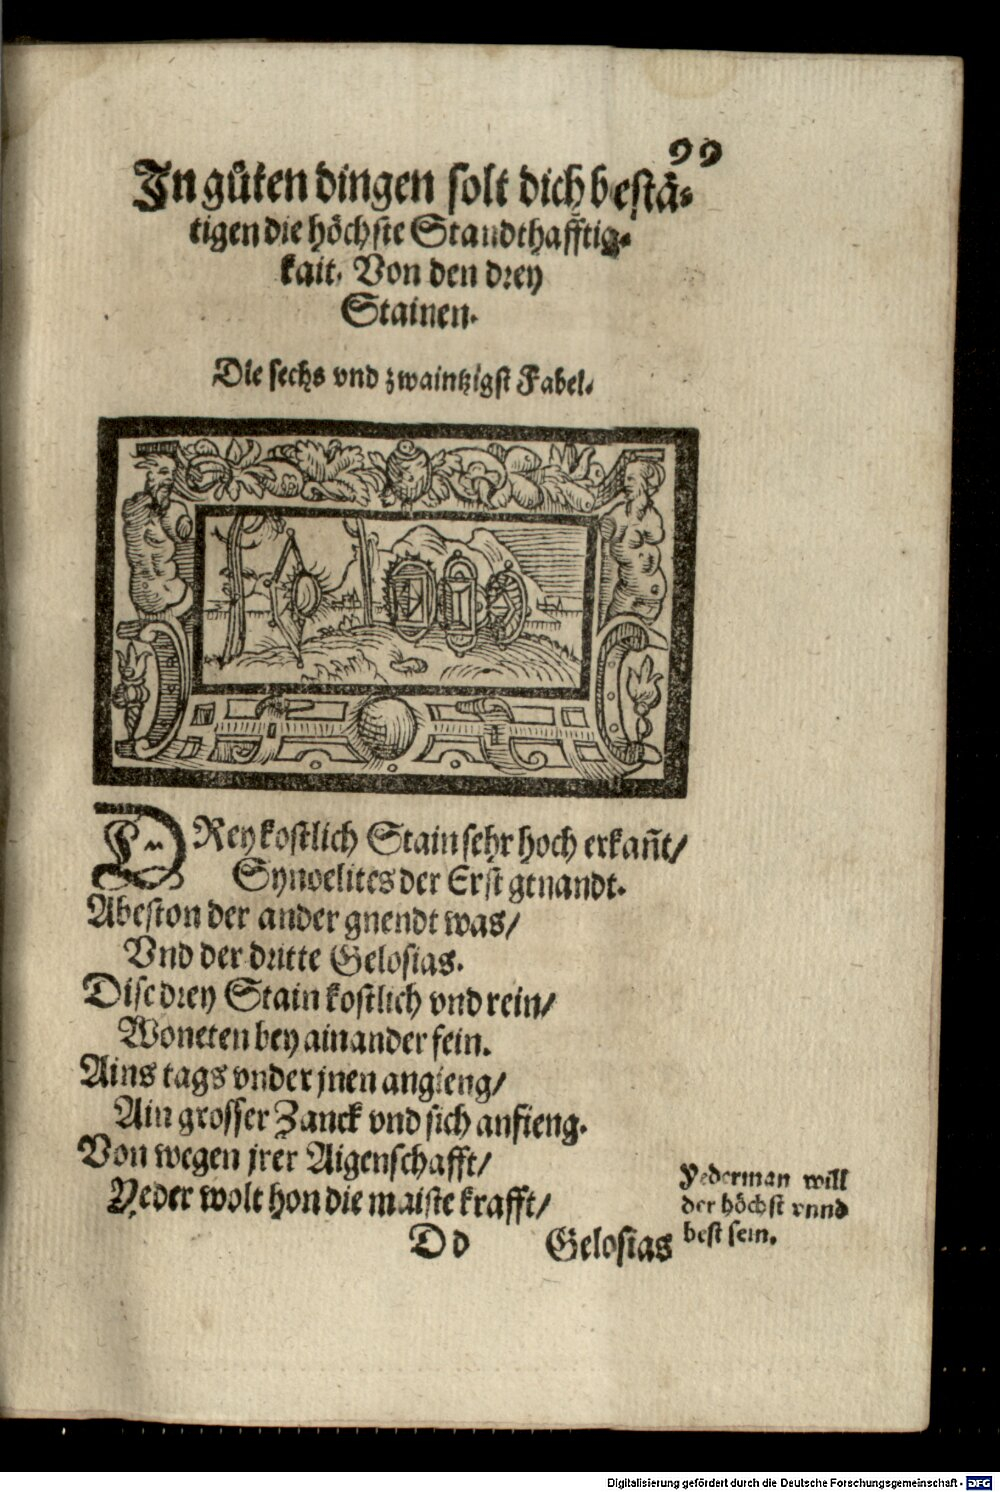 99
In gůten dingen solt dich bestä-
tigen die höchste Standthafftig-
kait. Von den drey
Stainen.
Die sechs vnd zwaintzigst Fabel.
DRey kostlich Stain sehr hoch erkañt/
Synoelites der Erst genandt.
Abeston der ander gnendt was/
Vnd der dritte Gelosias.
Dise drey Stain kostlich vnd rein/
Woneten bey ainander fein.
Ains tags vnder jnen angieng/
Ain grosser Zanck vnd sich anfieng.
Von wegen jrer Aigenschafft/
Yeder wolt hon die maiste krafft/
Yederman will
der höchst vnnd
best sein.
Dd Gelosias
Digitalisierung gefördert durch die Deutsche Forschungsgemeinschaft - DFG